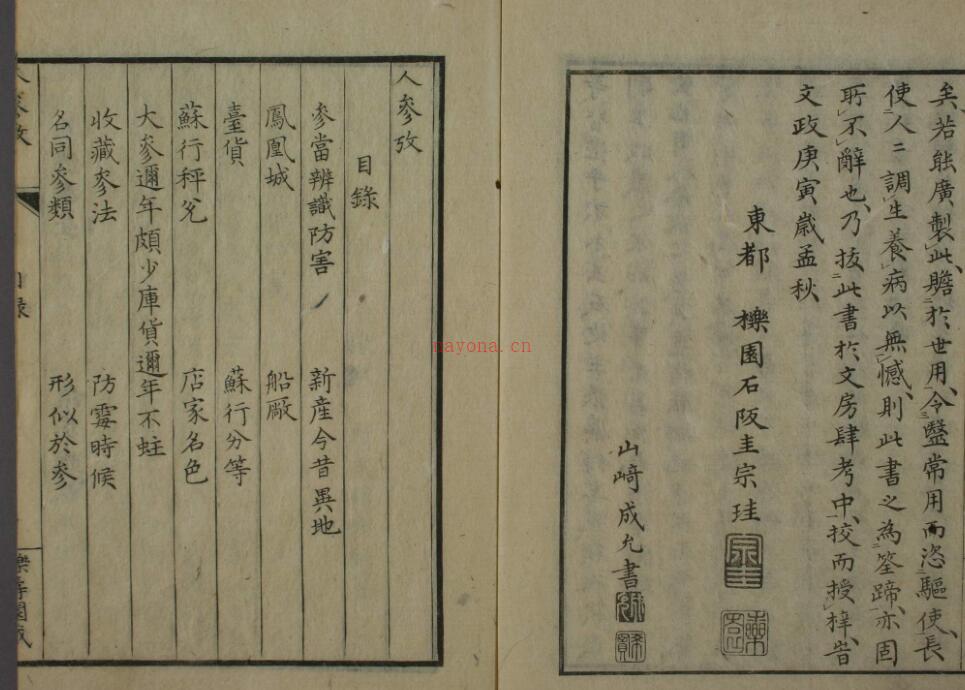 矣、若能廣製此贍於世用、令毉常用而恣驅使、長
使人二調生養病以無憾、則此書之為筌蹄、亦固
所不辭也、乃抜此書於文房肆考中、挍而授梓、旹
文政庚寅歲孟秋
東都 櫟園石阪圭宗珪
山﨑成允書
人參攷
目錄
參當辨識防害 新産今昔異地
鳳凰城 船廠
臺貨 蘇行分等
蘇行秤兌 店家名色
大參邇年頗少庫貨邇年不蛀
收藏參法 防霉時候
名同參類 形似於參
人參攷 目錄
nayona.cn